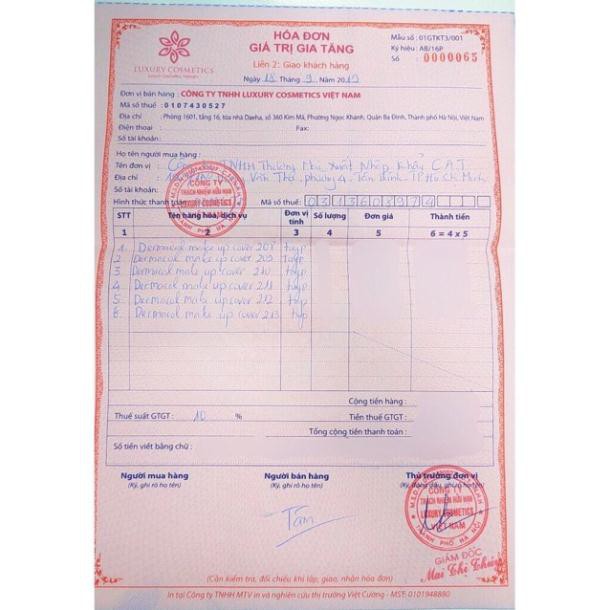 LUXURY COSMETICS
HÓA ĐƠN
GIÁ TRỊ GIA TĂNG
Liên 2: Giao khách hàng
Ngày 18 Tháng 9 Năm 2019
Mẫu số : 01GTKT3/001
Ký hiệu : AB/16P
Số : 0000065
Đơn vị bán hàng : CÔNG TY TNHH LUXURY COSMETICS VIỆT NAM
Mã số thuế : 0107430527
Địa chỉ : Phòng 1601, tầng 16, tòa nhà Daeha, số 360 Kim Mã, Phường Ngọc Khánh, Quận Ba Đình, Thành phố Hà Nội, Việt Nam
Điện thoại : Fax:
Số tài khoản:
Họ tên người mua hàng :
Tên đơn vị : TNHH Thương Mại Xuất Nhập Khẩu C.A.T
Địa chỉ : Văn Thọ, phường 4, Tân Bình, TP Hồ Chí Minh
Số tài khoản:
Hình thức thanh toán: Mã số thuế: 0313608974
STT Tên hàng hóa, dịch vụ Đơn vị tính Số lượng Đơn giá Thành tiền
1 2 3 4 5 6 = 4 x 5
1 Dermacol make up cover 208 tuýp
2 Dermacol make up cover 209 tuýp
3 Dermacol make up cover 210 tuýp
4 Dermacol make up cover 211 tuýp
5 Dermacol make up cover 212 tuýp
6 Dermacol make up cover 213 tuýp
Cộng tiền hàng :
Thuế suất GTGT : 10 % Tiền thuế GTGT :
Tổng cộng tiền thanh toán :
Số tiền viết bằng chữ :
Người mua hàng Người bán hàng Thủ trưởng đơn vị
(Ký, ghi rõ họ tên) (Ký, ghi rõ họ tên)
CÔNG TY
TRÁCH NHIỆM HỮU HẠN
LUXURY COSMETICS
VIỆT NAM
THÀNH PHỐ HÀ NỘI
Tâm
GIÁM ĐỐC
Mai Thị Thúy
(Cần kiểm tra, đối chiếu khi lập, giao, nhận hóa đơn)
In tại Công ty TNHH MTV in và nghiên cứu thị trường Việt Cường - MST: 0101948880